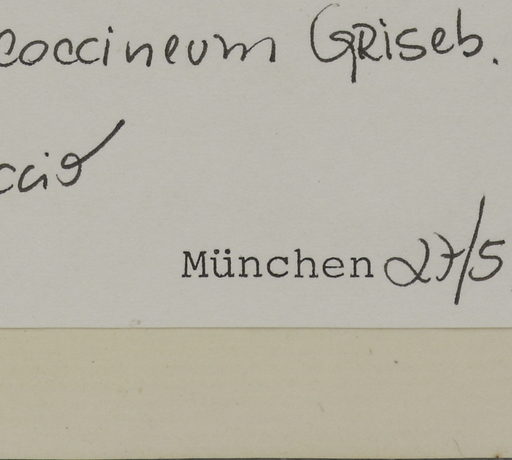 coccineum Griseb.
München 27/5